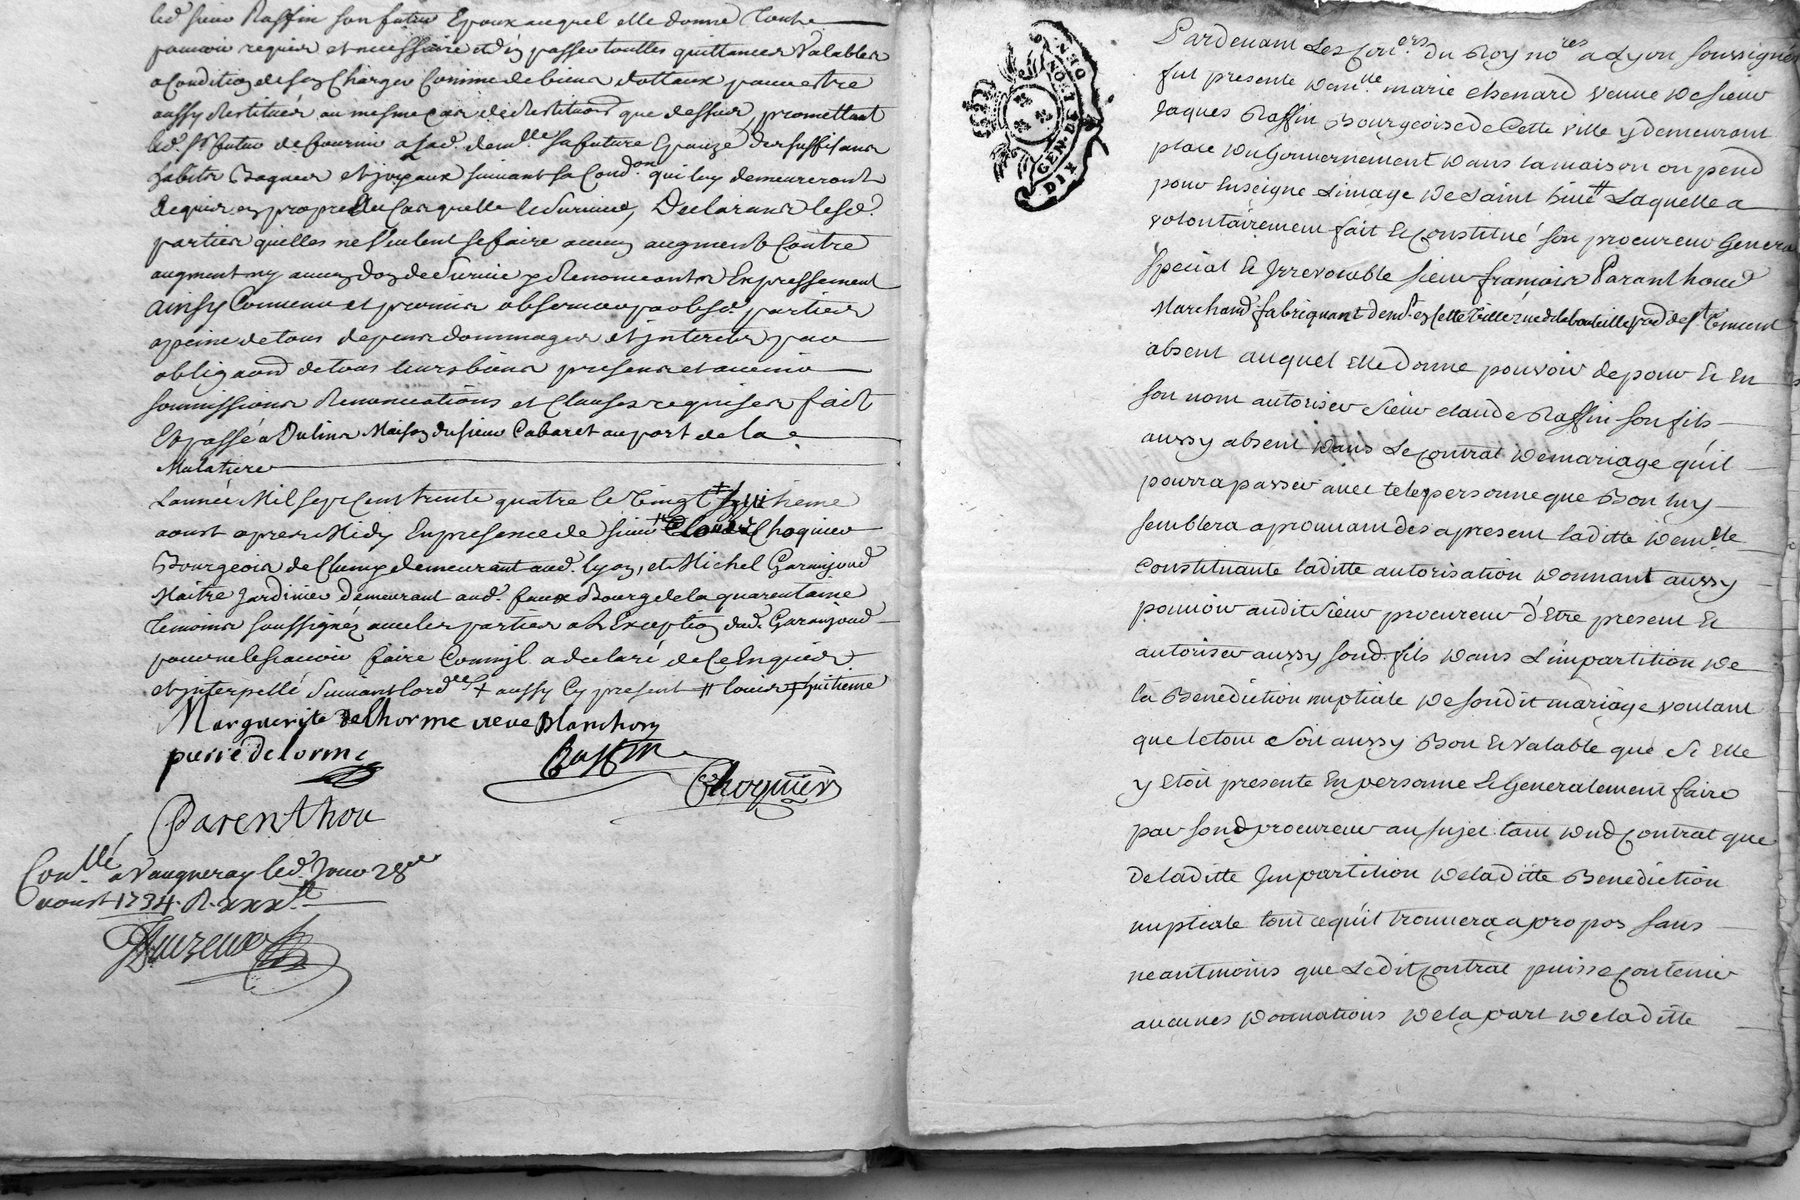 led. sieur Raffin son futur Epoux auquel elle donne toutte
pouvoir requis et necessaire et d'en passer touttes quittances Valables
a Condition de s'en Charger Comme de biens dottaux pour estre
aussy Restitues au mesme Cas de Restitution que dessus, promettant
led. sr. futur de fournir a lad. demlle. sa future Epouze des suffisans
habits Bagues et joyaux suivant sa Condon. qui luy demeureront
acquis en propre En Cas quelle le Survive, Declarans lesd.
parties quelles ne Veulent se faire aucun augment Contre
augment ny aucun don de Survie y Renonceants Expressement
ainsy Convenu et promis observer par lesd. parties
a peine de tous depens dommages et interets par
obligaond de tous leurs biens presens et avenir
soumissions Renonciations et Clauses requises fait
Et passé a Oulins Maison du sieur Cabaret au port de la
Mulatiere
L'année Mil sept Cent trente quatre le Vingt huitieme
aoust apres Midy En presence de sieur Choquier
Bourgeois de Cluny demeurant aud. Lyon, et Michel Garanjoud
Maitre Jardinier demeurant aud. faux Bourg de la quarentaine
temoins soussignés avec les parties a L'Exception dud. Garanjoud
pour ne le sçavoir faire Comme il a declaré de ce Enquis
et interpellé Suivant lord.ce + aussy Cy present # louis + huitieme
Marguerite delhorme veve Blanchon
pierre delorme
Raffin
Choquier
Parenthou
Con.llé a Vaugneray led. Jour 28e
aoust 1734. R. xxx s.
GEN. DE LYON
DIX DEN.
Pardevant Les Con.ers du Roy no.res a Lyon soussignés
fut presente Dem.lle marie chenard veuve De sieur
Jaques Raffin Bourgeois de Cette ville y demeurant
place Du Gouvernement Dans la maison ou pend
pour Enseigne L'image De Saint Laquelle a
volontairement fait Et Constitué son procureur General
Special Et Irrevocable sieur françois Paranthoud
Marchand fabriquant dem.t en Cette Ville rue de la bouteille de st. Vincent
absent auquel Elle Donne pouvoir de pour Et En
son nom autoriser sieur claude Raffin son fils
aussy absent Dans Le Contrat De mariage qu'il
pourra passer avec telle personne que Bon luy
semblera aprouvant des a present laditte Dem.lle
Constituante laditte autorisation Donnant aussy
pouvoir audit Sieur procureur d'Etre present Et
autoriser aussy sond. fils Dans L'impartition De
la Benediction nuptiale De sondit mariage voulant
que le tout Soit aussy Bon Et Valable que Si Elle
y Etoit presente En personne Et Generalement faire
par sond. procureur au sujet tant Dud. Contrat que
De laditte Impartition De laditte Benediction
nuptiale tout ce quil trouvera apropos sans
neantmoins que Ledit Contrat puisse Contenir
aucunes Donnations De la part De laditte